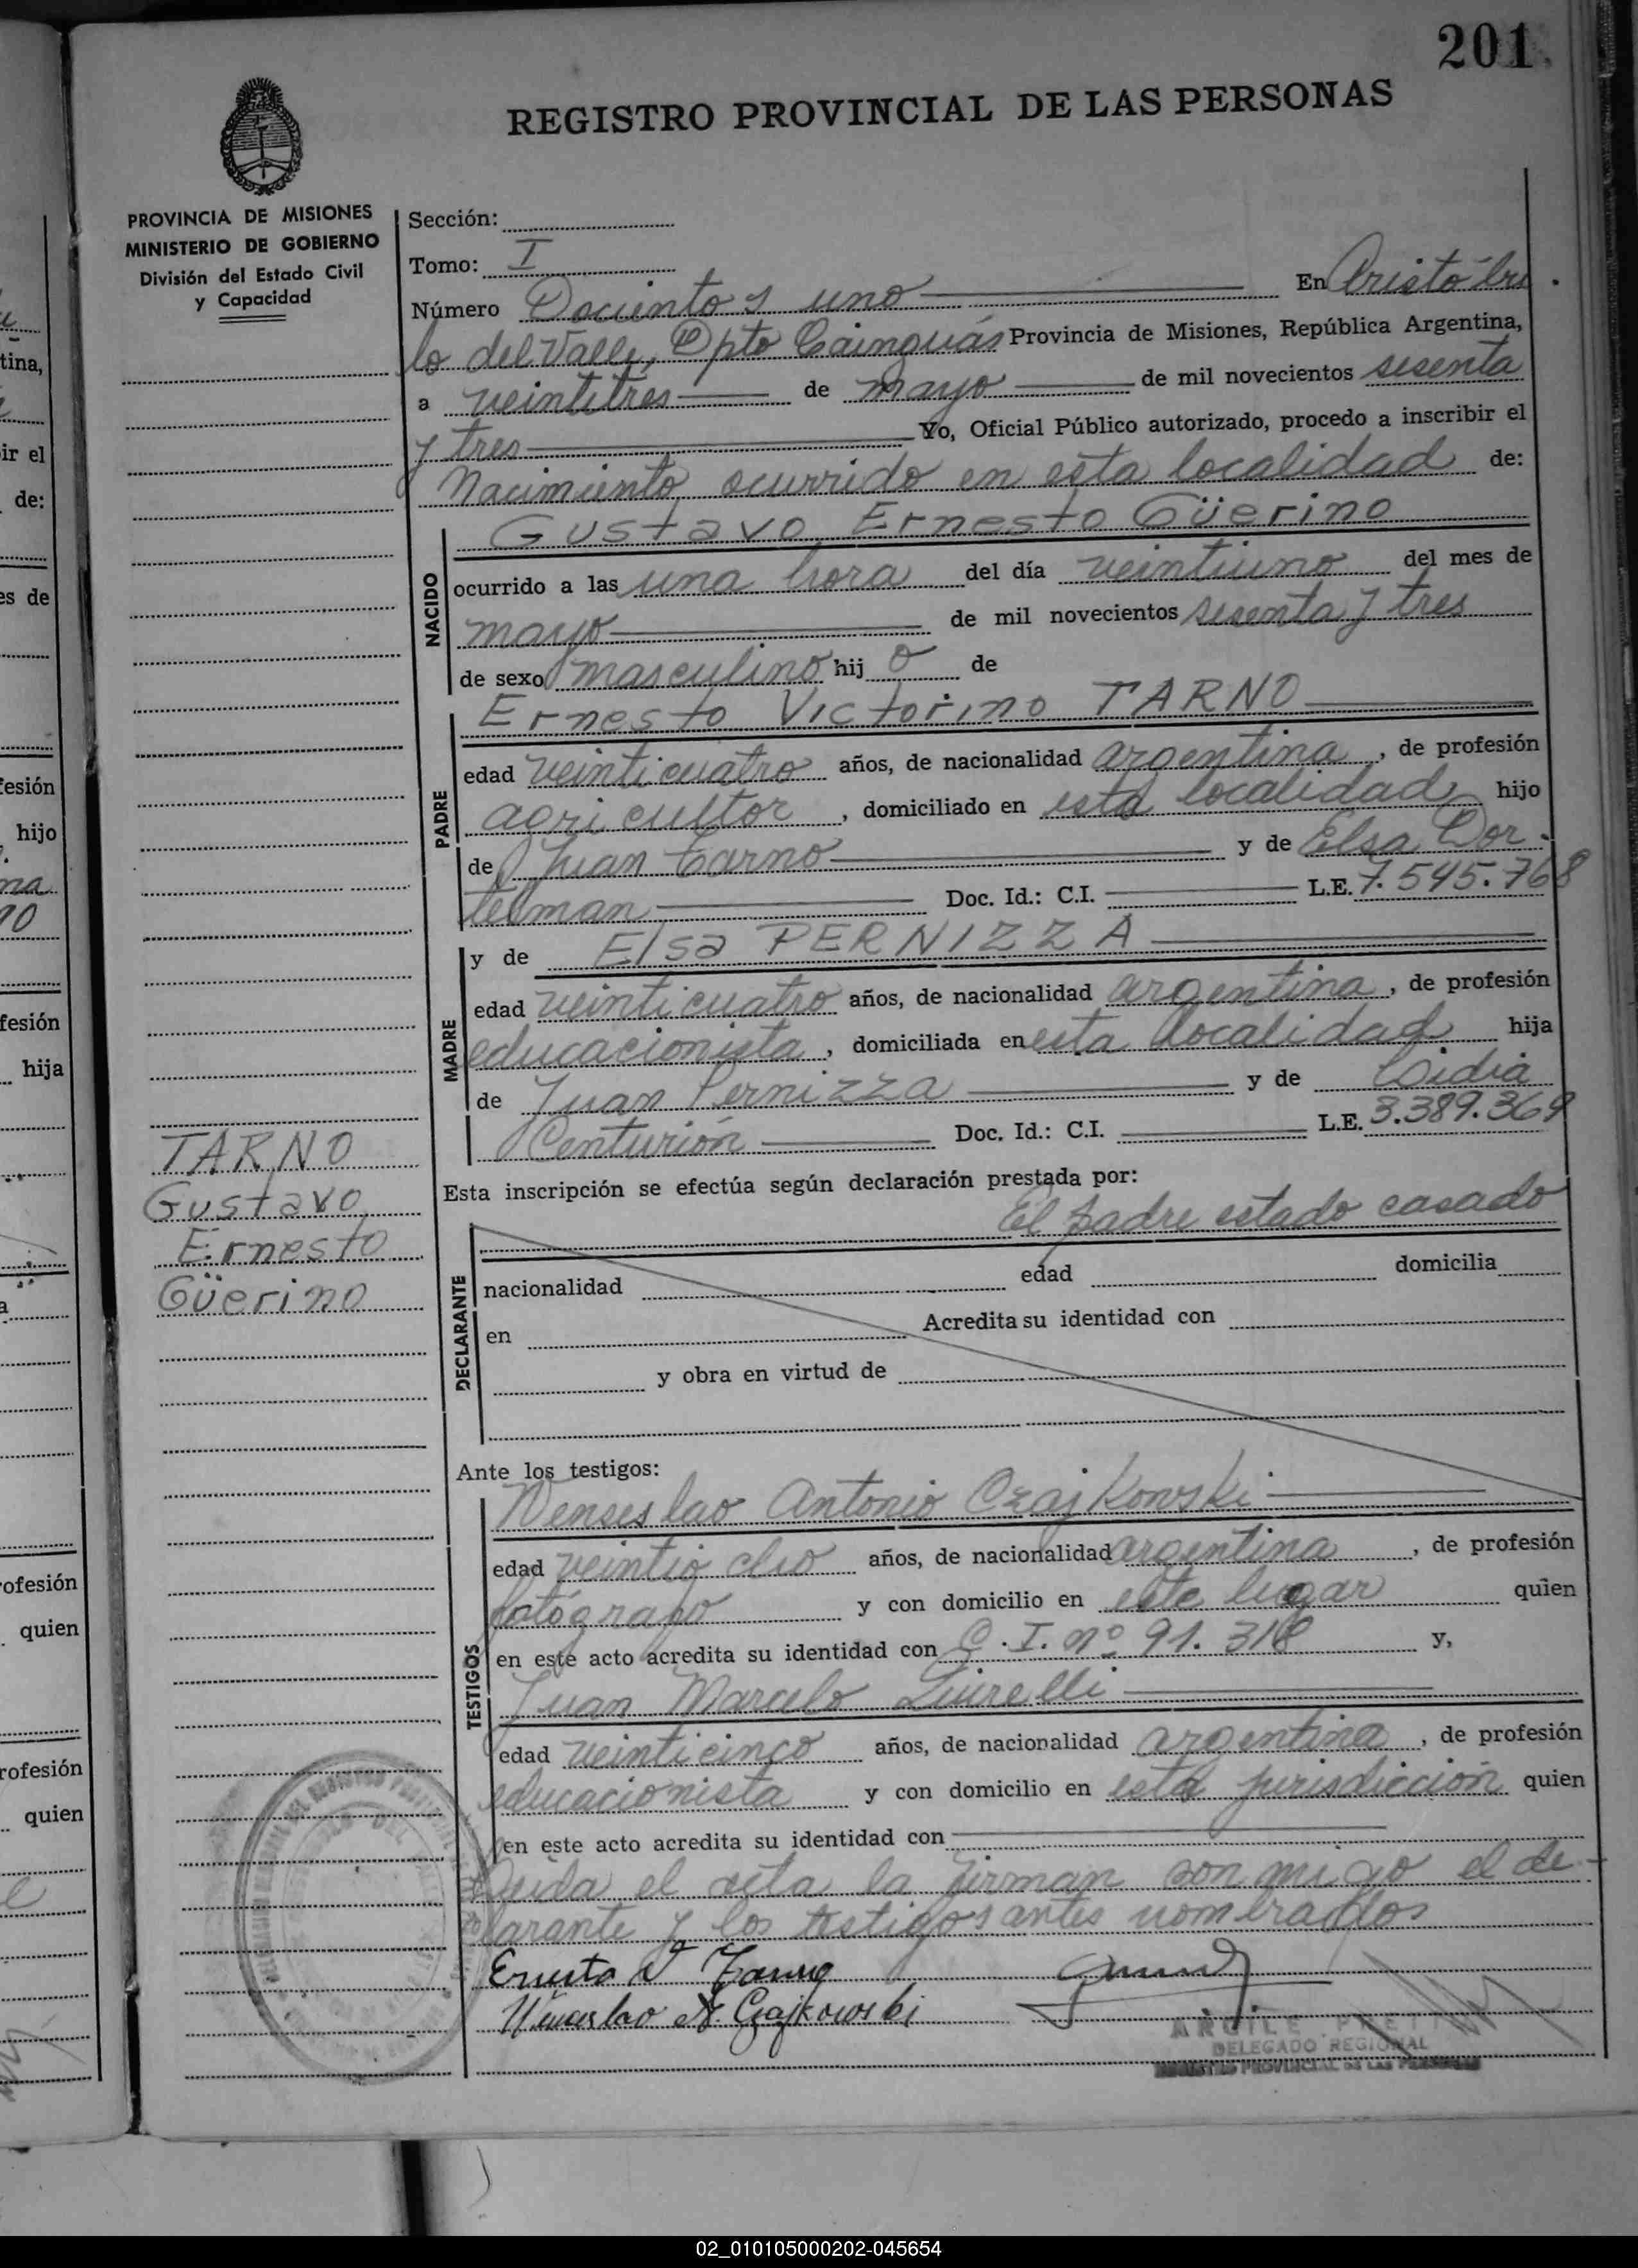 201
REGISTRO PROVINCIAL DE LAS PERSONAS
PROVINCIA DE MISIONES
MINISTERIO DE GOBIERNO
División del Estado Civil
y Capacidad
Sección:
Tomo: I
Número Dociento s uno En Aristóbu
lo del Valle, Dpto Cainguás Provincia de Misiones, República Argentina,
a veintitres de mayo de mil novecientos sesenta
y tres Yo, Oficial Público autorizado, procedo a inscribir el
Nacimiento ocurrido en esta localidad de:
NACIDO
Gustavo Ernesto Güerino
ocurrido a las una hora del día veintiuno del mes de
mayo de mil novecientos sesenta y tres
de sexo masculino hij o de
PADRE
Ernesto Victorino TARNO
edad veinticuatro años, de nacionalidad argentina, de profesión
agricultor, domiciliado en esta localidad hijo
de Juan Tarno y de Elsa Dor
telman Doc. Id.: C.I. L.E. 7.545.768
MADRE
y de Elsa PERNIZZA
edad veinticuatro años, de nacionalidad argentina, de profesión
educacionista, domiciliada en esta localidad hija
de Juan Pernizza y de Lidia
Centurión Doc. Id.: C.I. L.E. 3.389.369
TARNO
Gustavo
Ernesto
Güerino
Esta inscripción se efectúa según declaración prestada por:
El padre estado casado
DECLARANTE
nacionalidad edad domicilia
en Acredita su identidad con
y obra en virtud de
Ante los testigos:
TESTIGOS
Wenseslao Antonio Czajkowski
edad veintiocho años, de nacionalidad argentina, de profesión
fotógrafo y con domicilio en este lugar quien
en este acto acredita su identidad con C.I. nº 91.318 y,
Juan Marcelo
edad veinticinco años, de nacionalidad argentina, de profesión
educacionista y con domicilio en esta jurisdicción quien
en este acto acredita su identidad con
Leida el acta la firman conmigo el de-
clarante y los testigos antes nombrados
Ernesto V Tarno
Wenceslao A. Czajkowski
DELEGADO REGIONAL
REGISTRO PROVINCIAL DE LAS PERSONAS
02_010105000202-045654